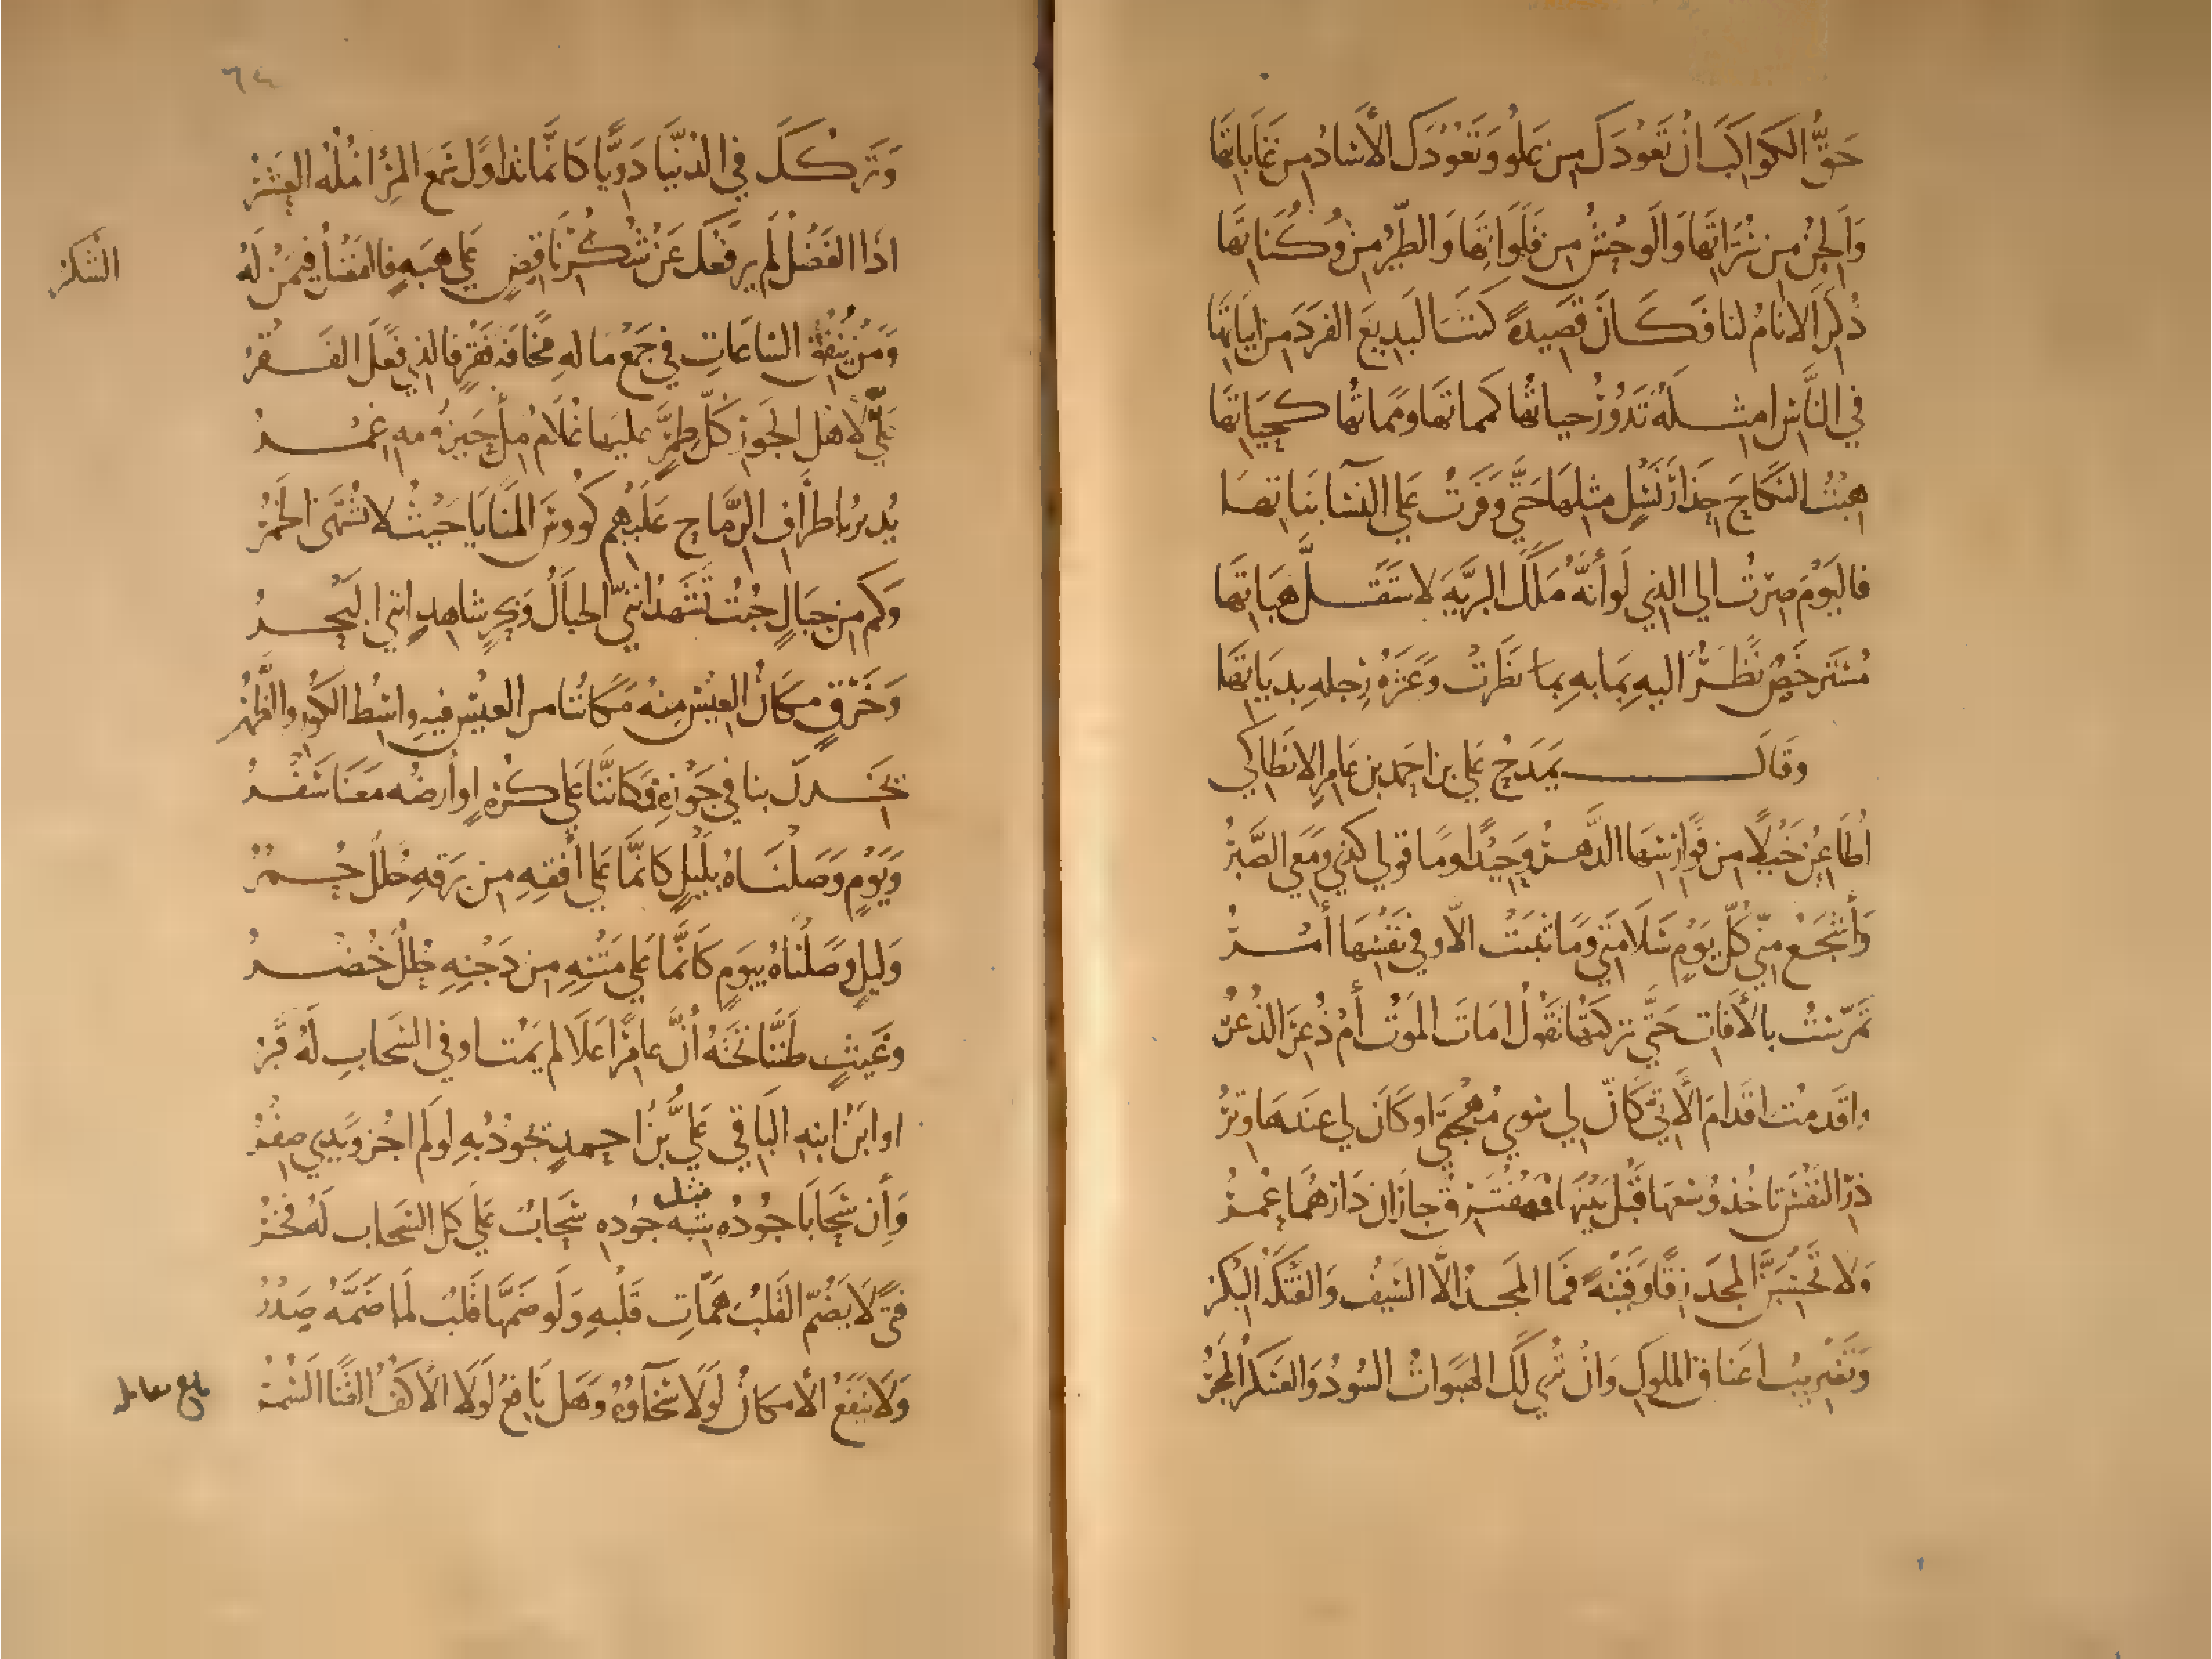 حَقُّ الكَواكِبَ انْ تَعُودَكَ مِن عَلْوُ وَتَعُوْدَكَ الأسَادُ مِن غَابَاتِهَا
وَالجِنُّ مِن سُتَرَاتِهَا وَالوَحْشُ مِن فَلَوَاتِهَا وَالطَّيْرُ مِنْ وُكَنَاتِهَا
ذُكِرَ الانَامُ لنا فَكَانَ قَصِيدةً كنتَ البَدِيعَ الفَرَدَ مِن ابيَاتِهَا
في النَّاسِ امثلَهٌ تَدُوْرُ حياتُها كمماتهَا ومَماتُها كحيَاتِهَا
هِبْتُ النكاحَ حِذارَ نَسْلٍ مثلِهَا حَتَّى وَفَرْتُ عَلى النسآ بَنَاتِهَا
فاليَوْمَ صِرْتُ الى الذي لَوْ أنّهُ مَلَكَ البَرِيَّةَ لاستَقَلَّ هِبَاتِهَا
مُسْتَرخَصٌ نَظَرٌ اليهِ بِمَا بهِ بما نَظَرتْ وَعَثْرَةُ رِجلهِ بدِيَاتِهَا
وَقَالَ يَمْدَحُ عَلي بن احمد بن عَامِرٍ الانطَاكي
اُطَاعِنُ خَيْلًا مِن فَوَارِسِهَا الدَّهْرُ وَحِيْدًا ومَا قولي كذي ومَعي الصَّبْرُ
وَأشْجَعُ مِنّي كُلَّ يَوْمٍ سَلَامَتي وَمَا ثبَتتْ الّا وفي نَفْسِهَا أمْرُ
تَمَرّسْتُ بالأفَاتِ حَتَّى تركتهَا تقُولُ امَاتَ المَوْتُ أمْ ذُعِرَ الذُّعْرُ
واقدَمْتُ اقْدَامَ الأَتِيِّ كَأنّ لي سِوي مُهْجَتي او كَانَ لي عِندهَا وِتْرُ
ذَرِ النَفْسَ تاخُذ وُسْعَهَا قَبْلَ بَيْنِهَا فمُفْتَرِقٌ جارَانِ دَارهُمَا عُمْرُ
وَلا تَحْسِبَنَّ المجْدَ زِقًّا وَقَيْنَةً فَمَا المجْدُ الّا السَيْفُ وَالفَتْكَةُ البِكْرُ
وَتَضْرِيبُ اعنَاقِ الملوكِ وَانْ تُرى لَكَ الهَبَوَاتُ السُودُ وَالعَسْكرُ المَجْرُ
٦٤
وَتَركُكَ في الدنْيَا دَوِيًّا كانّما تداوَلَ سَمْعَ المَرْءِ انمُلُهُ العَشْرُ
اذَا الفَضْلُ لَم يَرفَعْكَ عَنْ شُكْرِ نَاقِصٍ عَلى هِبَهٍ فالفَضْلُ فيمَنْ لَهُ
الشُّكْرُ
وَمَنْ يُنفِقُ السَاعَاتِ في جَمْعِ مَالهِ مخَافَهَ فَقْرٍ فالذي فَعَلَ الفَقْرُ
عَلَيَّ لأهْلِ الجَورِ كُلُّ طِمِرَّةٍ عليهَا غُلَامٌ مِلُْ حَيْزُومهِ غِمْرُ
يُديرُ باطرَافِ الرِّمَاحِ عَلَيْهِم كُؤوسَ المَنَايَا حَيْثُ لا تُشْتَهَى الخَمْرُ
وَكَم مِن جبَالٍ جُبْتُ تَشْهَدُ انّني الجبَالُ وَبَحْرٍ شاهِدٍ انّني البَحْرُ
وَخَرْقٍ مكَانُ العِيْسِ مِنْهُ مَكانُنا من العِيْسِ فيهِ واسِطُ الكُورِ والظَّهْرُ
يَخِدْنَ بنا في جَوْزِهِ فكَانّنَا عَلى كُرَةٍ او أرضُه مَعَنَا سَفْرُ
وَيَوْمٍ وَصَلْنَاهُ بلَيْلٍ كَانّمَا عَلى أُفْقِهِ مِن بَرقهِ حُلَلٌ حُمْرُ
وَليلٍ وصَلنَاهُ بيَومٍ كَانَّمَا عَلى مَتْنِهِ مِن دَجْنِهِ حُلَلٌ خُضْرُ
وغَيْثٍ ظَنَنَّا تحتَهُ أنَّ عامِرًا عَلَا لم يَمُتْ او في السَحَابِ لَهُ قَبْرُ
او ابنَ ابنِهِ البَاقي عَليَّ بْنَ احمدٍ يَجُوْدُ بهِ لو لَم اجُزْ ويَدي صِفْرُ
مثل
وَأن سَحَابًا جُوْدُه شِبه جُوْدِهِ سَحَابٌ عَلى كلّ السَحَاب لَهُ فَخْرُ
فتًى لا يَضُمّ القَلبُ هِمّاتِ قَلْبِهِ وَلَو ضَمَّهَا قَلبٌ لَمَا ضَمَّهُ صَدْرُ
وَلَا يَنفَعُ الأمكَانُ لَوْلَا سَخَاؤُهُ وَهَل نَافِعٌ لَوْلَا الاكُفُّ القَنَا السُّمْرُ
بلغ مقابله